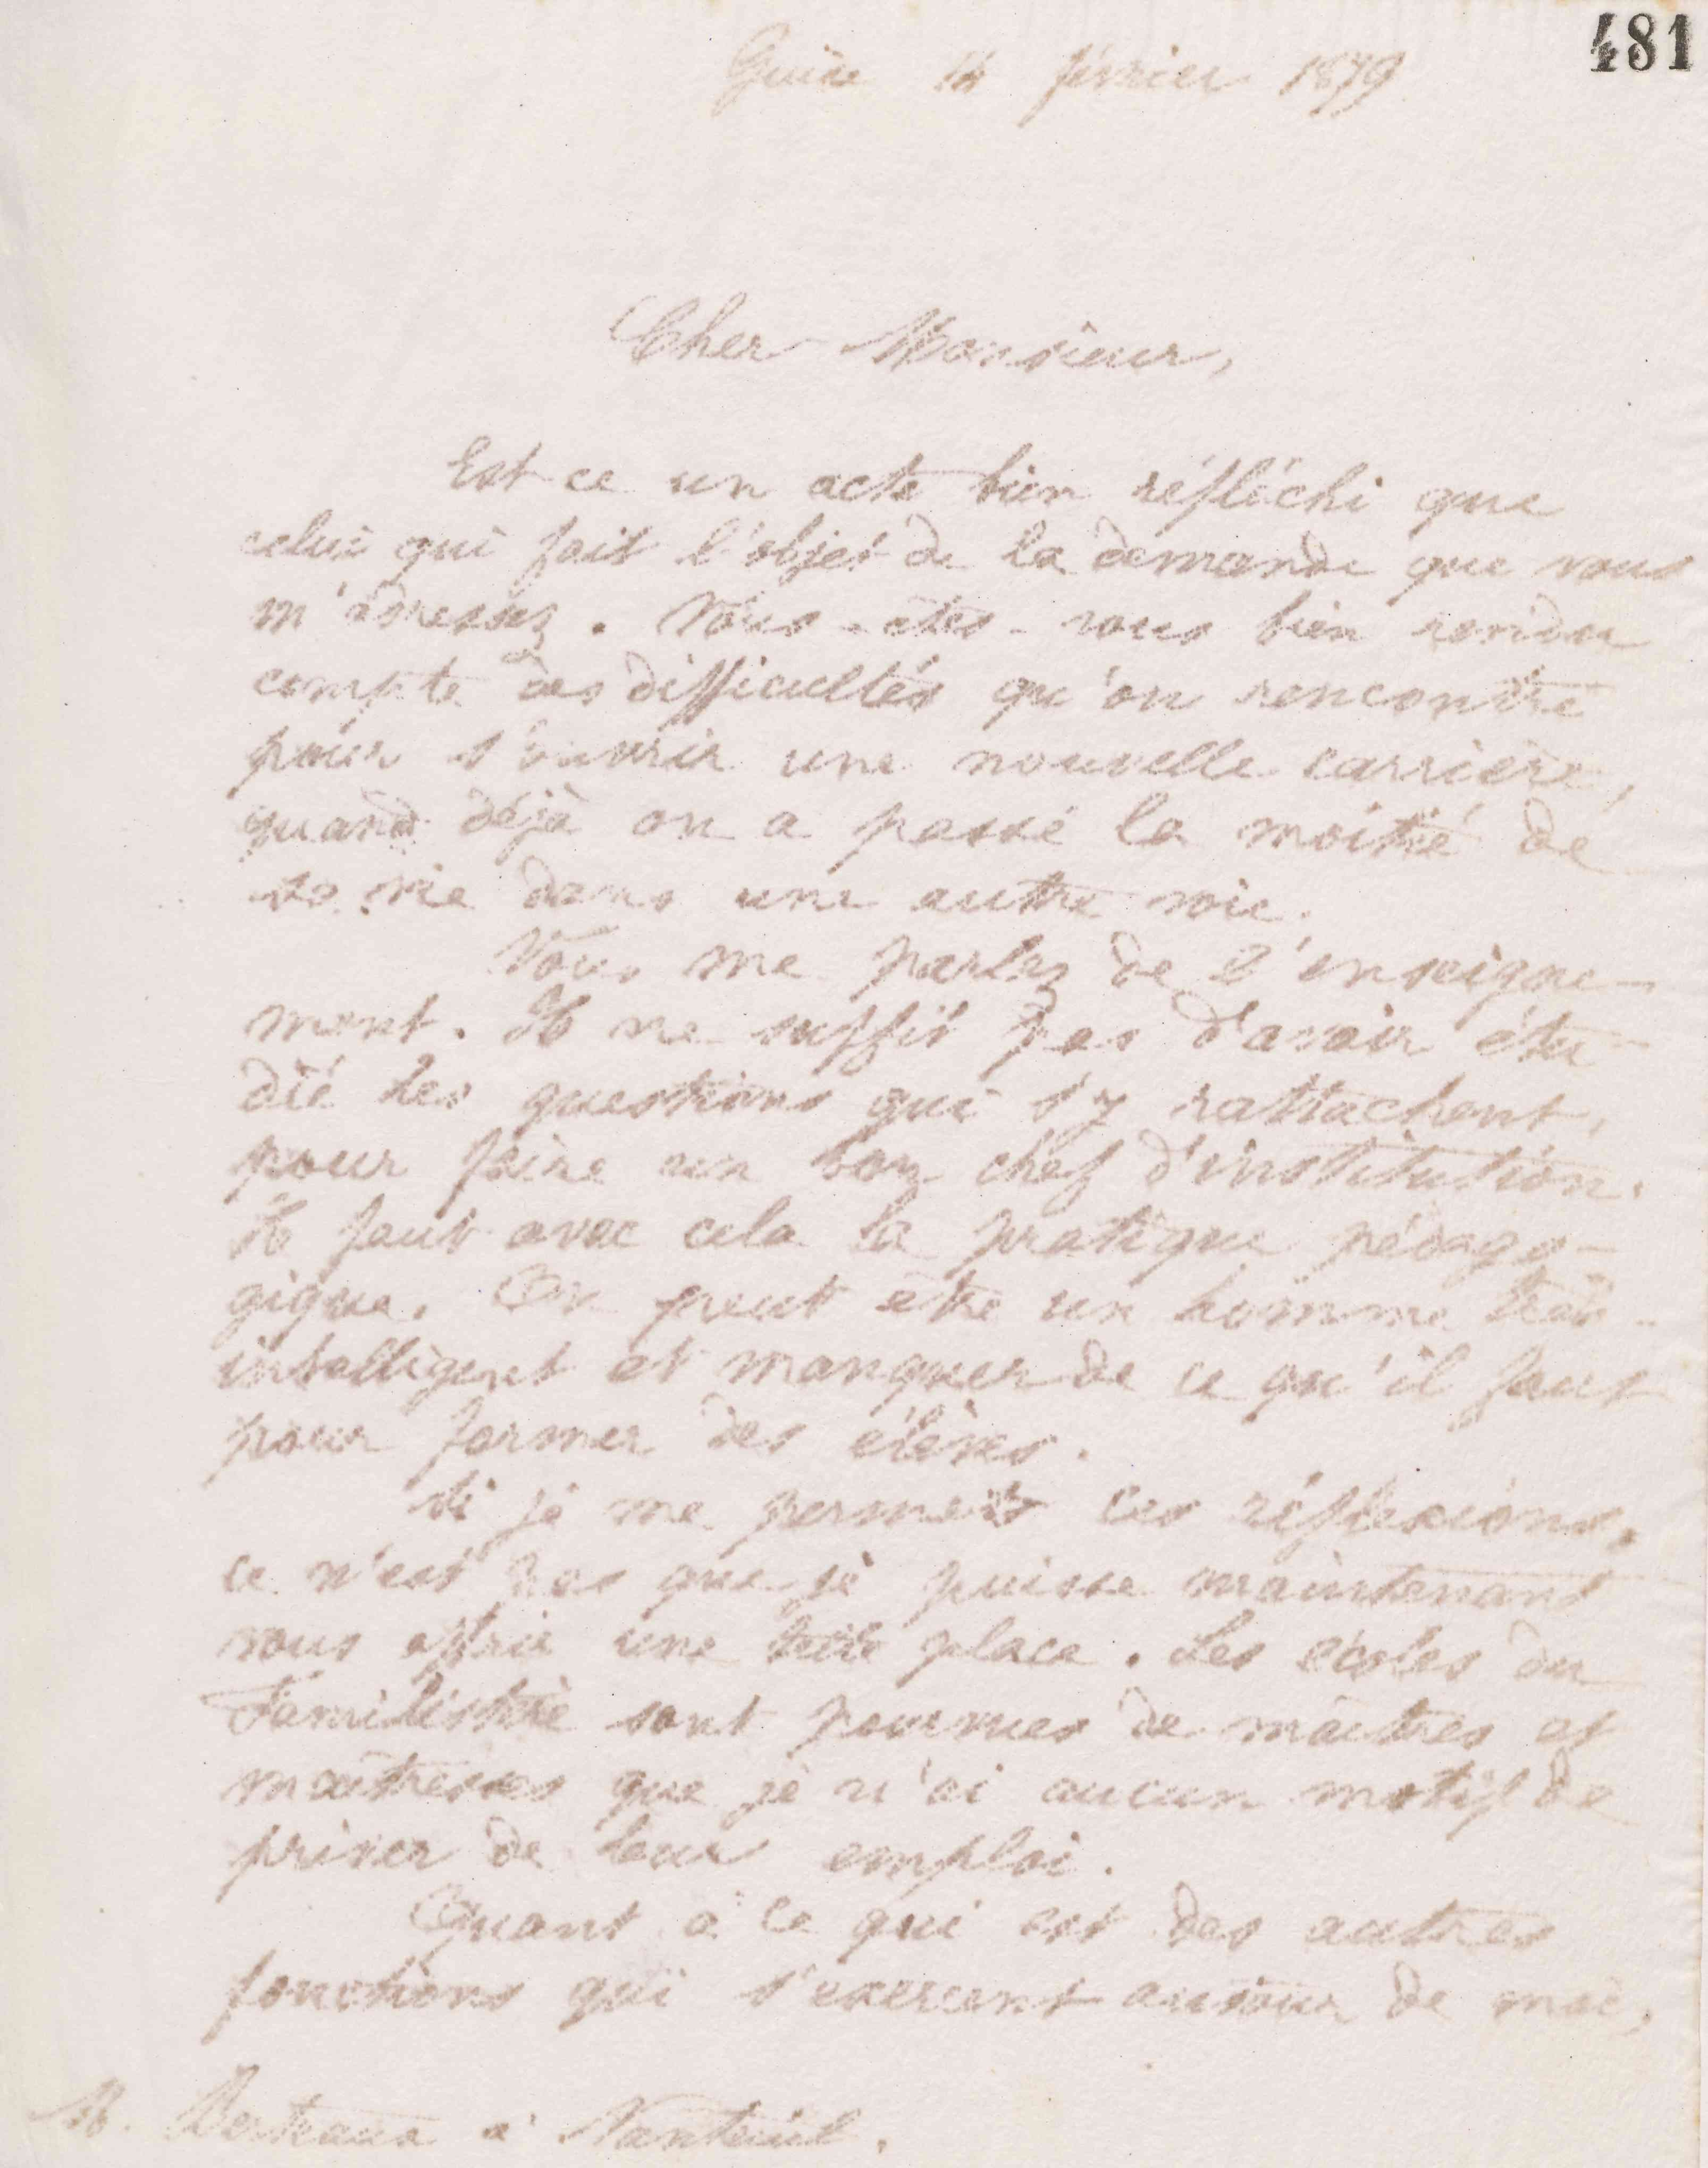 481
Guise 14 février 1879
Cher Monsieur,
Est ce un acte bien réfléchi que
celui qui fait l'objet de la demande que vous
m'adressez. Vous-êtes-vous bien rendu
compte des difficultés qu'on rencontre
pour s'ouvrir une nouvelle carrière,
quand déjà on a passé la moitié de
sa vie dans une autre voie.
Vous me parlez de l'enseigne-
ment. Il ne suffit pas d'avoir étu-
dié les questions qui s'y rattachent,
pour faire un bon chef d'institution.
Il faut avec cela la pratique pédago-
gique. On peut être un homme très-
intelligent et manquer de ce qu'il faut
pour former des élèves.
Si je me permets ces réflexions,
ce n'est pas que je puisse maintenant
vous offrir une telle place. Les écoles du
Familistère sont pourvues de maîtres et
maîtresses que je n'ai aucun motif de
priver de leur emploi.
Quant à ce qui est des autres
fonctions qui s'exercent autour de moi,
M. à Nanteuil.